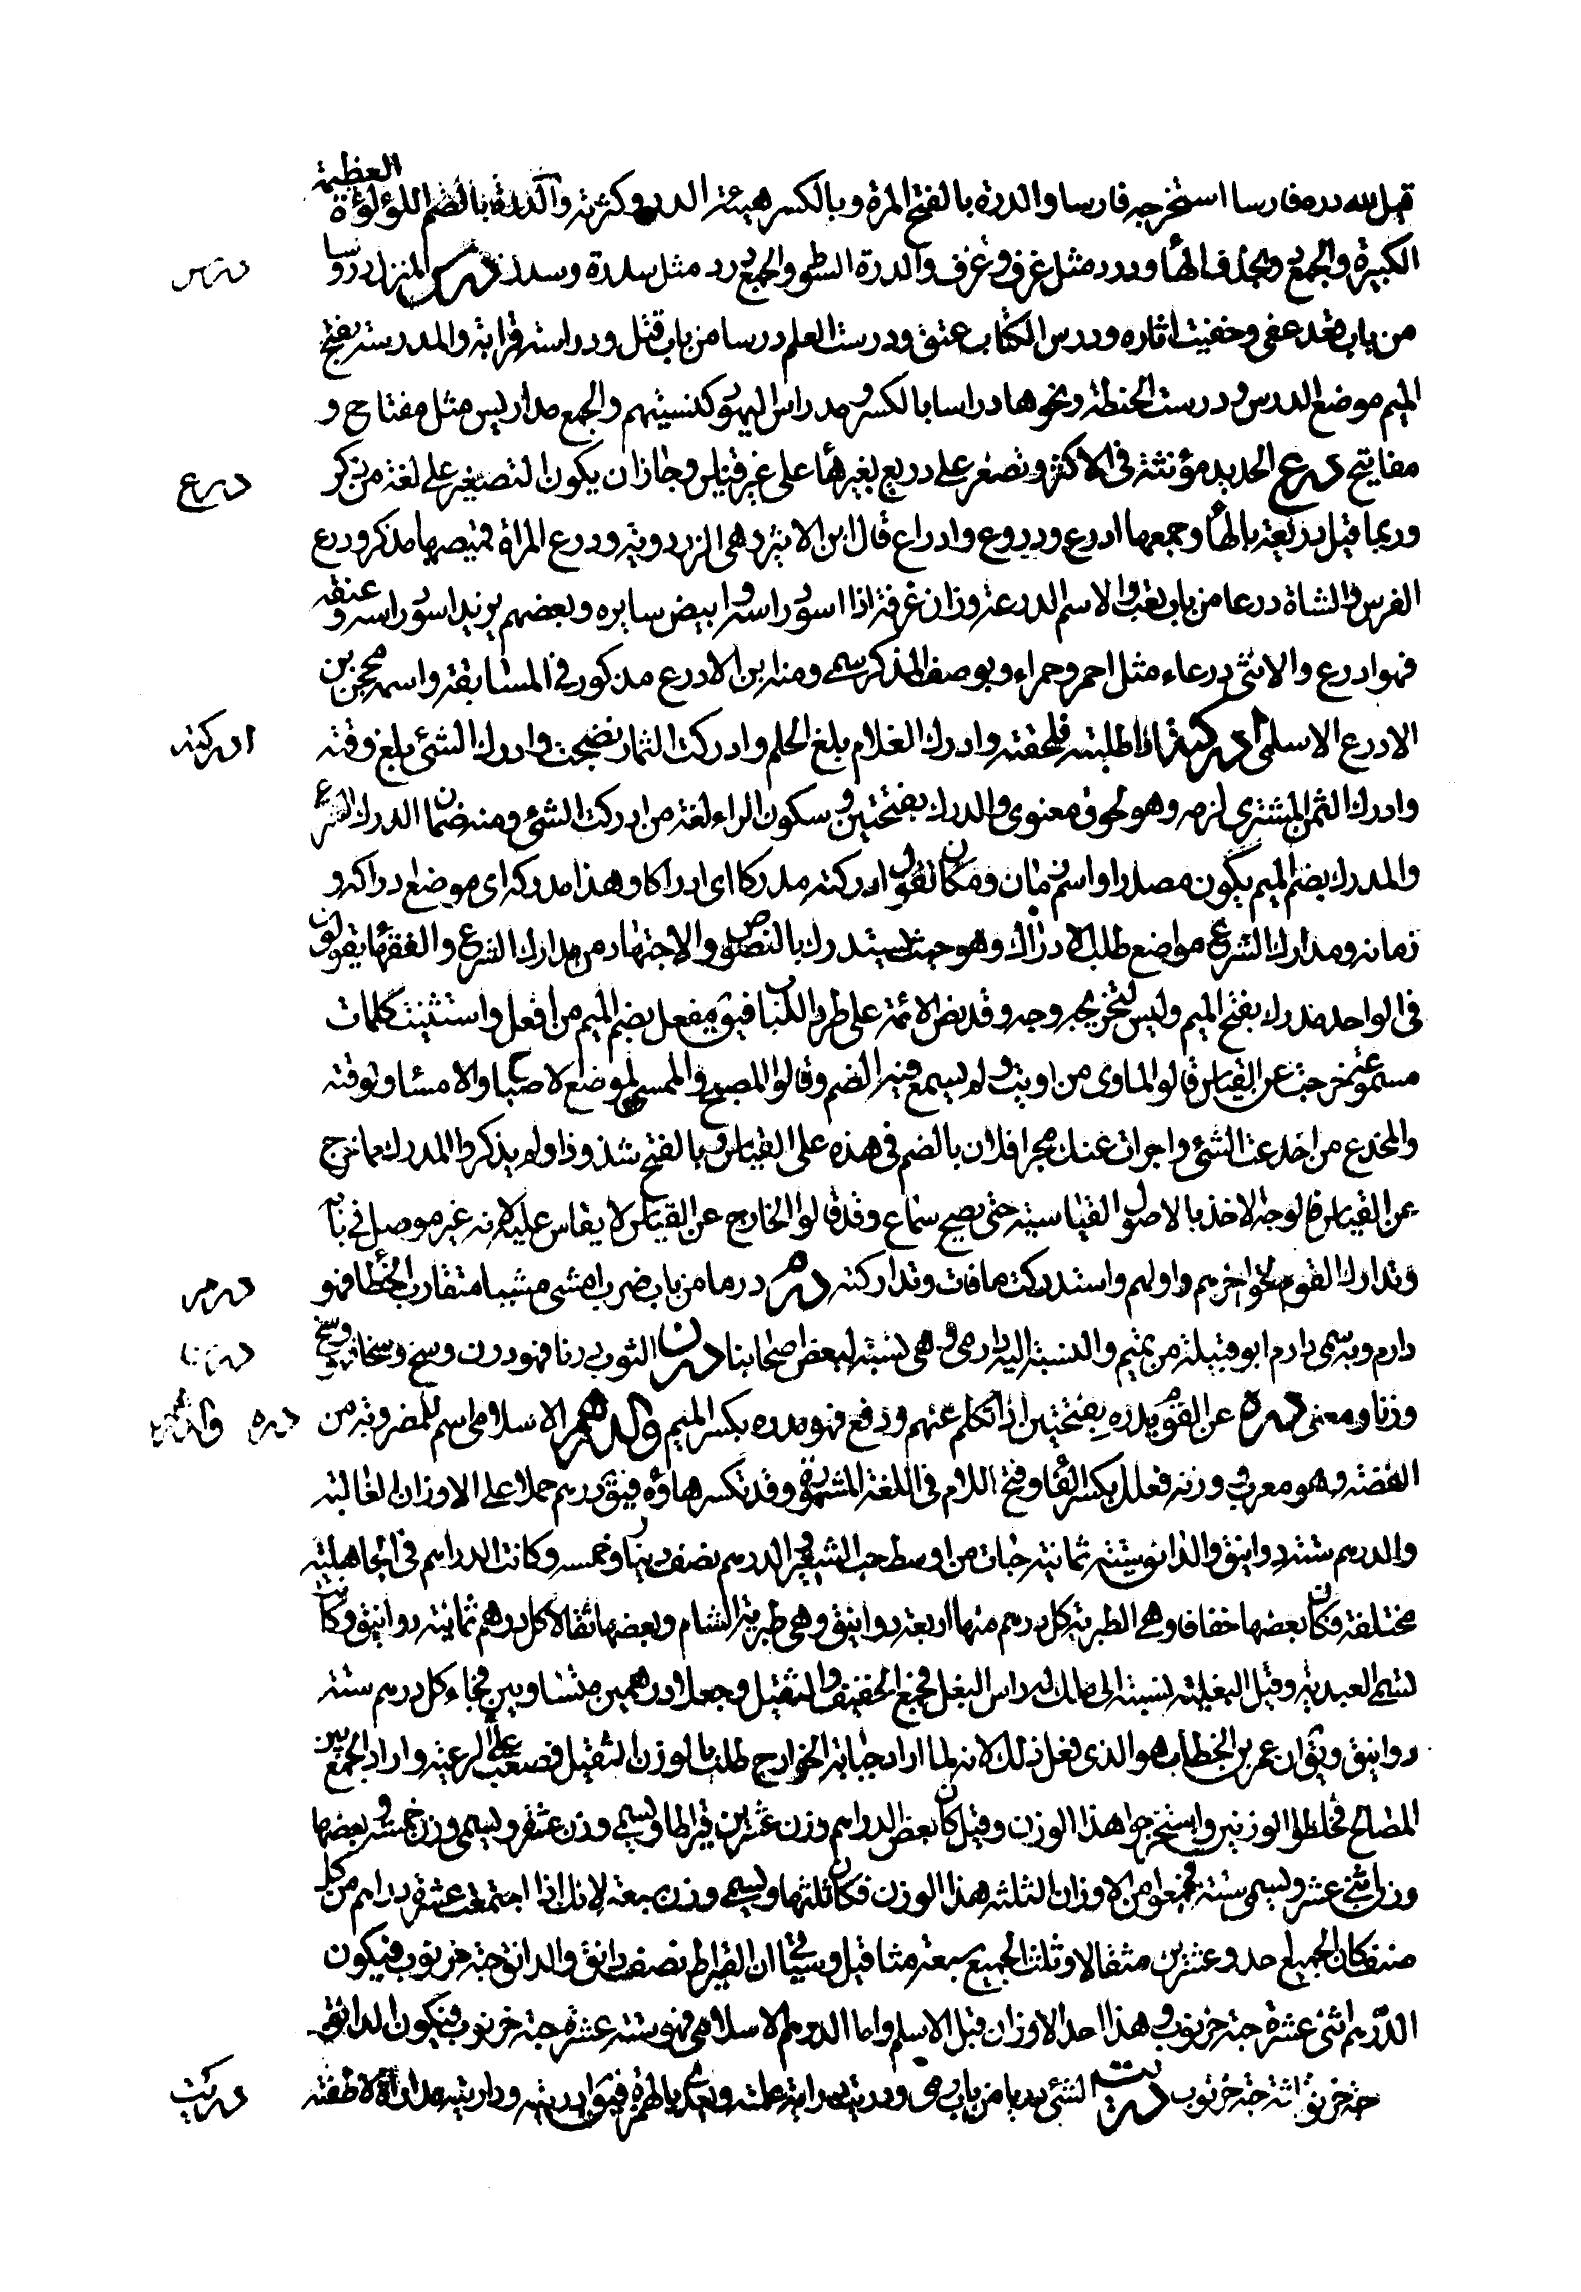 قيل لله دره فارسا استخرجه فارسا والدرة بالفتح المرة وبالكسر هيئة الدر وكثرته والدرة بالضم اللؤلؤة العظيمة
الكبيرة والجمع در بحذف الهاء ودرر مثل غرفة وغرف والدرة السوط والجمع درر مثل سدرة وسدر درس المنزل دروسا
درس
من باب قعد عفى وخفيت اثاره ودرس الكتاب عتق ودرست العلم درسا من باب قتل ودراسة قراته والمدرسة بفتح
الميم موضع الدرس ودرست الحنطة ونحوها دراسا بالكسر ومدراس اليهود كنيستهم والجمع مداريس مثل مفتاح و
مفاتيح درع الحديد مؤنثة في الاكثر وتصغر على دريع بغير هاء على غير قياس وجاز ان يكون التصغير على لغة من ذكر
درع
وربما قيل دريعة بالهاء وجمعها ادرع ودروع وادراع قال ابن الاثير وهي الزردية ودرع المراة قميصها مذكر ودرع
الفرس والشاة درعا من باب تعب والاسم الدرعة وزان غرفة اذا اسود راسه وابيض سايره وبعضهم يزيد اسود راسه وعنقه
فهو ادرع والانثى درعاء مثل احمر وحمراء وبوصف المذكر سمي ومنه ابن الادرع مذكور في المسابقة واسمه محجن بن
الادرع الاسلمي ادركته اذا طلبته فلحقته وادرك الغلام بلغ الحلم وادركت الثمار نضجت وادرك الشئ بلغ وقته
ادركته
وادرك الثمن المشتري لزمه وهو لحوق معنوي والدرك بفتحتين وسكون الراء لغة من ادركت الشئ ومنه ضمان الدرك
والمدرك بضم الميم يكون مصدرا واسم زمان ومكان تقول ادركته مدركا اي ادراكا وهذا مدركه اي موضع ادراكه و
زمانه ومدارك الشرع مواضع طلب الادراك وهو حيث يستدرك بالنصوص والاجتهاد من مدارك الشرع والفقهاء يقولون
في الواحد مدرك بفتح الميم وليس لتخريجه وجه وقد نص الائمة على طرد الباب فيق مفعل بضم الميم من افعل واستثنيت كلمات
مسموعة خرجت عن القياس قالوا الماوى من اويت ولم يسمع فيه الضم وقالوا المصبح والممسى لموضع الاصباح والامساء ولوقته
والمخدع من اخدعت الشئ واجرات عنك مجرا فلان بالضم في هذه على القياس وبالفتح شذوذا ولم يذكروا المدرك مما خرج
عن القياس فالوجه الاخذ بالاصول القياسية حتى يصح سماع وقد قالوا الخارج عن القياس لا يقاس عليه لانه غير موصل في بابه
وتدارك القوم لحق اخرهم اولهم واستدركت ما فات وتداركته درم درما من باب ضرب مشى مشيا متقارب الخطا فهو
درم
دارم وبه سمي دارم ابو قبيلة من تميم والنسبة اليه دارمي وهي نسبة لبعض اصحابنا درن الثوب درنا فهو درن مثل وسخ وسخا فهو وسخ
درن
وزنا ومعنى دره عن القوم يدره بفتحتين اذا تكلم عنهم ودفع فهو مدره بكسر الميم والدرهم الاسلامي اسم للمضروب من
دره والدرهم
الفضة وهو معرب وزنه فعلل بكسر الفاء وفتح اللام في اللغة المشهورة وقد تكسر هاؤه فيق درهم حملا على الاوزان الغالبة
والدرهم ستة دوانيق والدانق ثمانية حبات من اوسط حب الشعير الدرهم نصف دينار وخمسه وكانت الدراهم في الجاهلية
مختلفة فكان بعضها خفافا وهي الطبرية كل درهم منها اربعة دوانيق وهي طبرية الشام وبعضها ثقالا كل درهم ثمانية دوانيق وكانت
تسمى العبدية وقيل البغلية نسبة الى ملك له راس البغل فجمع الخفيف والثقيل وجعلا درهمين متساويين فجاء كل درهم ستة
دوانيق ويق ان عمر بن الخطاب هو الذي فعل ذلك لانه لما اراد جباية الخراج طلب بالوزن الثقيل فصعب على الرعية واراد الجمع بين
المصالح فخلطوا الوزنين واستخرجوا هذا الوزن وقيل كان بعض الدراهم وزن عشرين قيراطا ويسمى وزن عشرة ويسمى وزن خمسة وبعضها
وزن اثنى عشر ويسمى ستة فجمعوا من الاوزان الثلثة هذا الوزن فكان ثلثها ويسمى وزن سبعة لانك اذا جمعت عشرة دراهم من كل
صنف كان الجميع احد وعشرين مثقالا وثلث الجميع سبعة مثاقيل وسياتي ان القيراط نصف دانق والدانق حبة خرنوب فيكون
الدرهم اثنى عشرة حبة خرنوب وهذا احد الاوزان قبل الاسلام واما الدرهم الاسلامي فهو ستة عشرة حبة خرنوب فيكون الدانق
حبة خرنوب وثلث حبة خرنوب دريت الشئ دريا من باب رمى ودرية ودراية علمته ويعدى بالهمزة فيق ادريته وداريته مداراة لاطفته
دريت